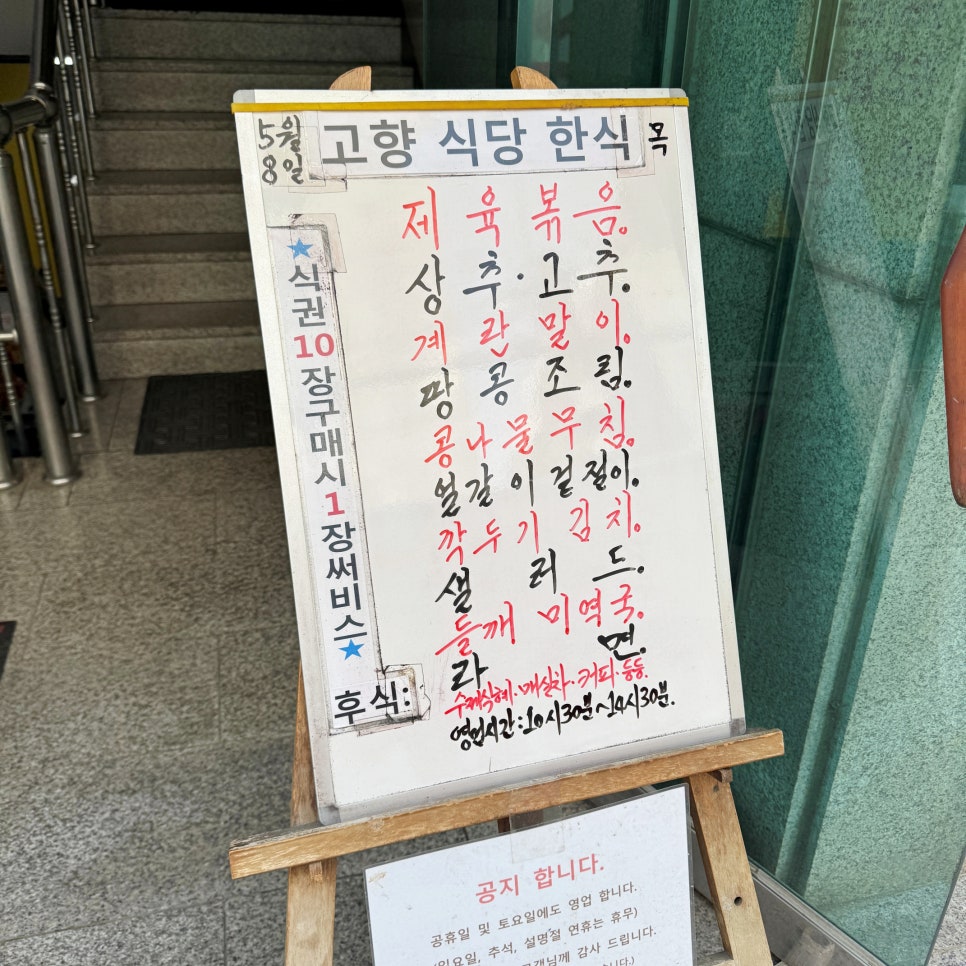 5월
8일
고향 식당 한식
목
제육볶음.
상추·고추.
계란말이.
땅콩조림.
콩나물무침.
얼갈이겉절이.
깍두기 김치.
샐러드.
들깨 미역국.
라면.
★식권10장구매시1장써비스★
후식:
수제식혜·매실차·커피·등등.
영업시간:10시30분~14시30분.
공지 합니다.
공휴일 및 토요일에도 영업 합니다.
(일요일, 추석, 설명절 연휴는 휴무)
감사 드립니다.